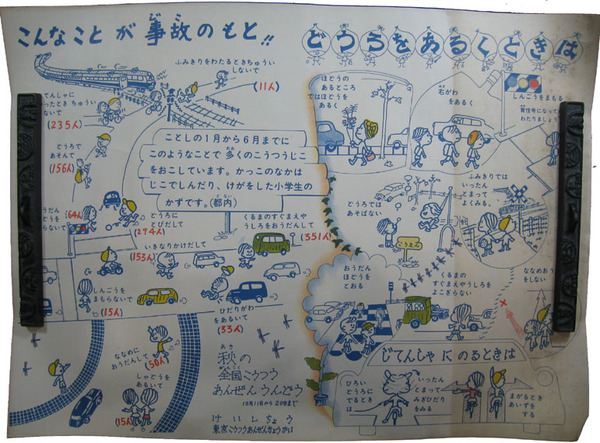 こんなことが事故のもと!!
じこ
ふみきりをわたるときちゅうい
しないで
(11人)
でんしゃに
ちゅうい
ないで
(235人)
どうろで
あそんで
(156人)
ことしの1月から6月までに
このようなことで多くのこうつうじこ
をおこしています。かっこのなかは
じこでしんだり、けがをした小学生の
かずです。(都内)
(64人)
どうろに
とびだして
(294人)
くるまのすぐまえや
うしろをおうだんして
(351人)
いきなりかけだして
(153人)
しんごうを
まもらないで
(15人)
ひだりがわ
をあるいて
(33人)
ななめに
おうだんして
(56人)
しゃどうを
あるいて
(15人)
あき
秋の
全国こうつう
あんぜんうんどう
けいしちょう
東京こうつうあんぜんきょうかい
どうろをあるくときは
ほどうの
あるところ
ではほどうを
あるく
右がわ
をあるく
しんごうをまもる
わたりましょう
どうろでは
あそばない
ふみきりでは
いったん
とまって
よくみる。
おうだん
ほどうを
とおる
くるまの
すぐまえやうしろを
よこぎらない
ななめおうだん
をしない
じてんしゃにのるときは
ひろい
どうろに
でるとき
は
いったん
とまって
みぎひだり
をみる
まがるとき
あいずを
する